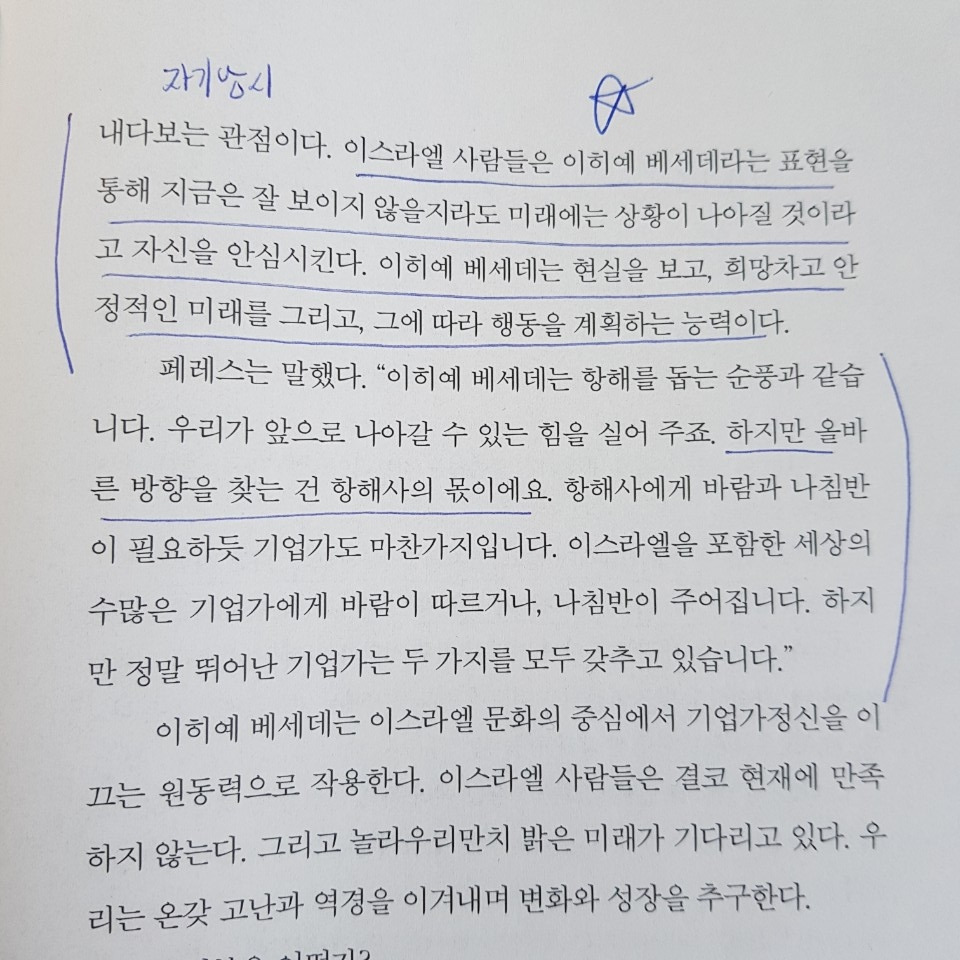 내다보는 관점이다. 이스라엘 사람들은 이히예 베세데라는 표현을
통해 지금은 잘 보이지 않을지라도 미래에는 상황이 나아질 것이라
고 자신을 안심시킨다. 이히예 베세데는 현실을 보고, 희망차고 안
정적인 미래를 그리고, 그에 따라 행동을 계획하는 능력이다.
페레스는 말했다. “이히예 베세데는 항해를 돕는 순풍과 같습
니다. 우리가 앞으로 나아갈 수 있는 힘을 실어 주죠. 하지만 올바
른 방향을 찾는 건 항해사의 몫이에요. 항해사에게 바람과 나침반
이 필요하듯 기업가도 마찬가지입니다. 이스라엘을 포함한 세상의
수많은 기업가에게 바람이 따르거나, 나침반이 주어집니다. 하지
만 정말 뛰어난 기업가는 두 가지를 모두 갖추고 있습니다.”
이히예 베세데는 이스라엘 문화의 중심에서 기업가정신을 이
끄는 원동력으로 작용한다. 이스라엘 사람들은 결코 현재에 만족
하지 않는다. 그리고 놀라우리만치 밝은 미래가 기다리고 있다. 우
리는 온갖 고난과 역경을 이겨내며 변화와 성장을 추구한다.